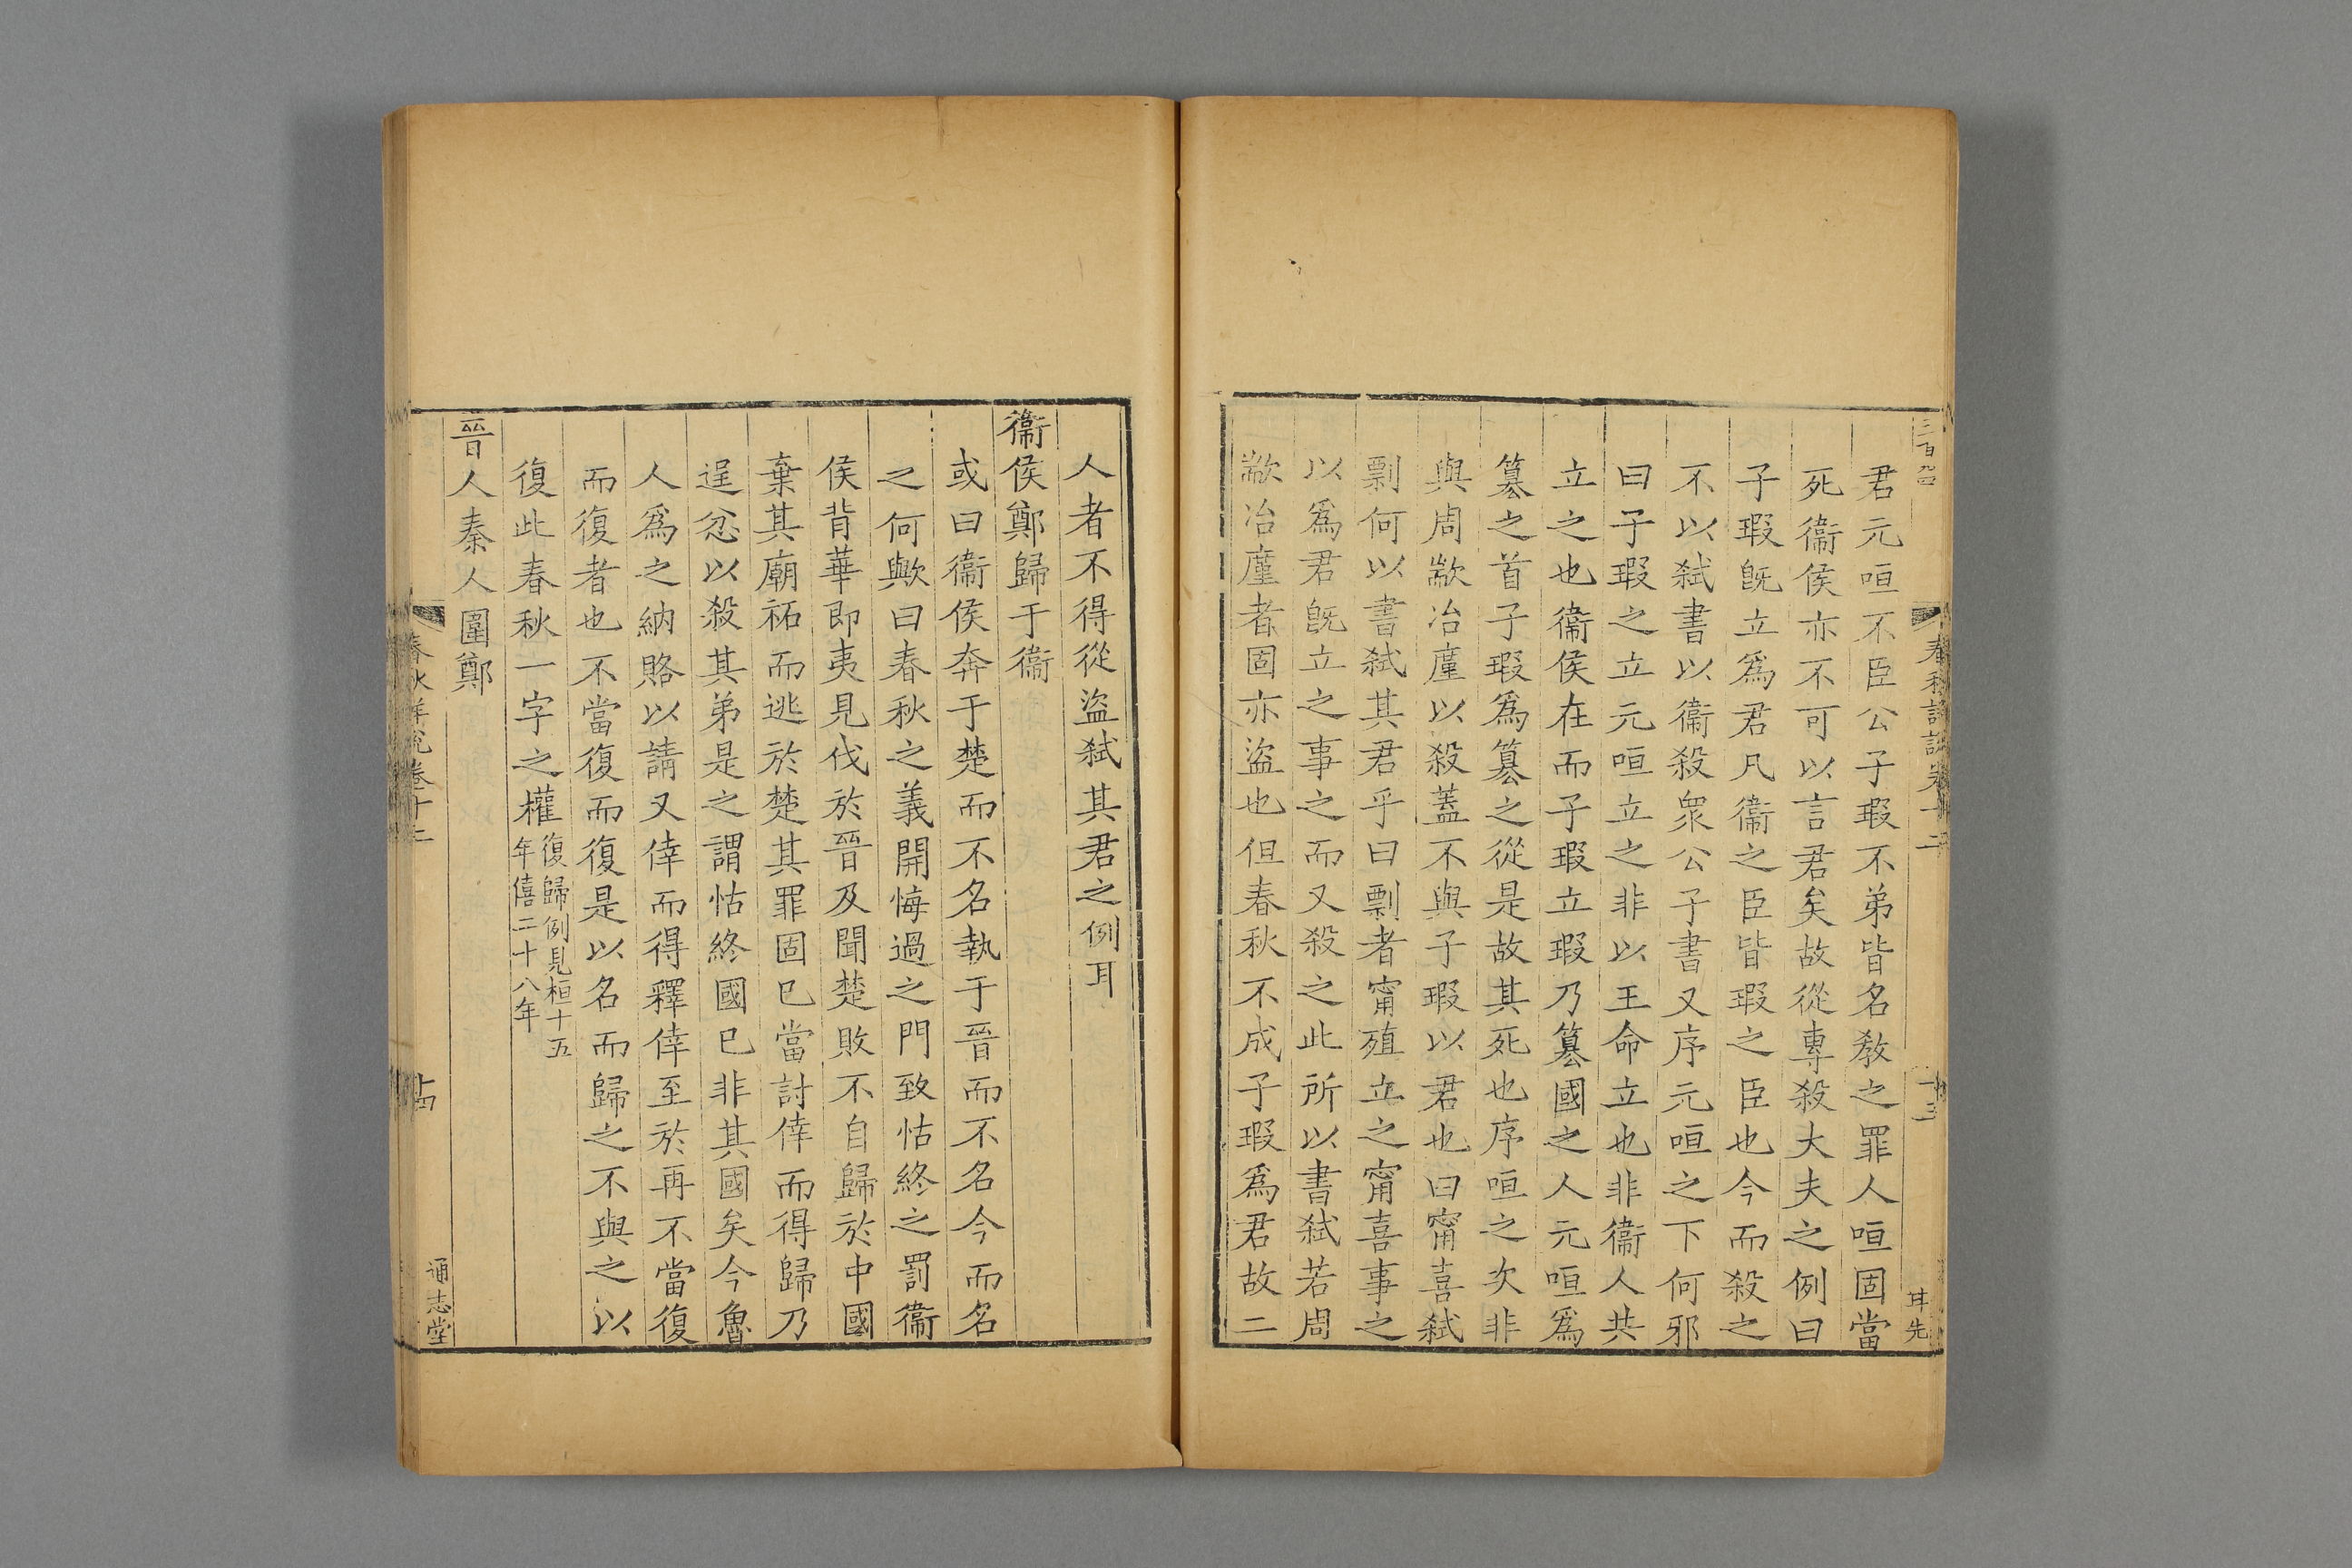 三百九四
春秋詳說卷十二
十三
君元咺不臣公子瑕不弟皆名教之罪人咺固當
死衞侯亦不可以言君矣故從專殺大夫之例曰
子瑕旣立爲君凡衞之臣皆瑕之臣也今而殺之
不以弑書以衞殺衆公子書又序元咺之下何邪
曰子瑕之立元咺立之非以王命立也非衞人共
立之也衞侯在而子瑕立瑕乃簒國之人元咺爲
簒之首子瑕爲簒之從是故其死也序咺之次非
與周歂冶廑以殺蓋不與子瑕以君也曰甯喜弑
剽何以書弑其君乎曰剽者甯殖立之甯喜事之
以爲君旣立之事之而又殺之此所以書弑若周
歂冶廑者固亦盜也但春秋不成子瑕爲君故二
人者不得從盜弑其君之例耳
衞侯鄭歸于衞
或曰衞侯奔于楚而不名執于晉而不名今而名
之何歟曰春秋之義開悔過之門致怙終之罰衞
侯背華卽夷見伐於晉及聞楚敗不自歸於中國
棄其廟祏而逃於楚其罪固已當討倖而得歸乃
逞忿以殺其弟是之謂怙終國已非其國矣今魯
人爲之納賂以請又倖而得釋倖至於再不當復
而復者也不當復而復是以名而歸之不與之以
復此春秋一字之權復歸例見桓十五年僖二十八年
晉人秦人圍鄭
春秋詳說卷十二
十四
通志堂